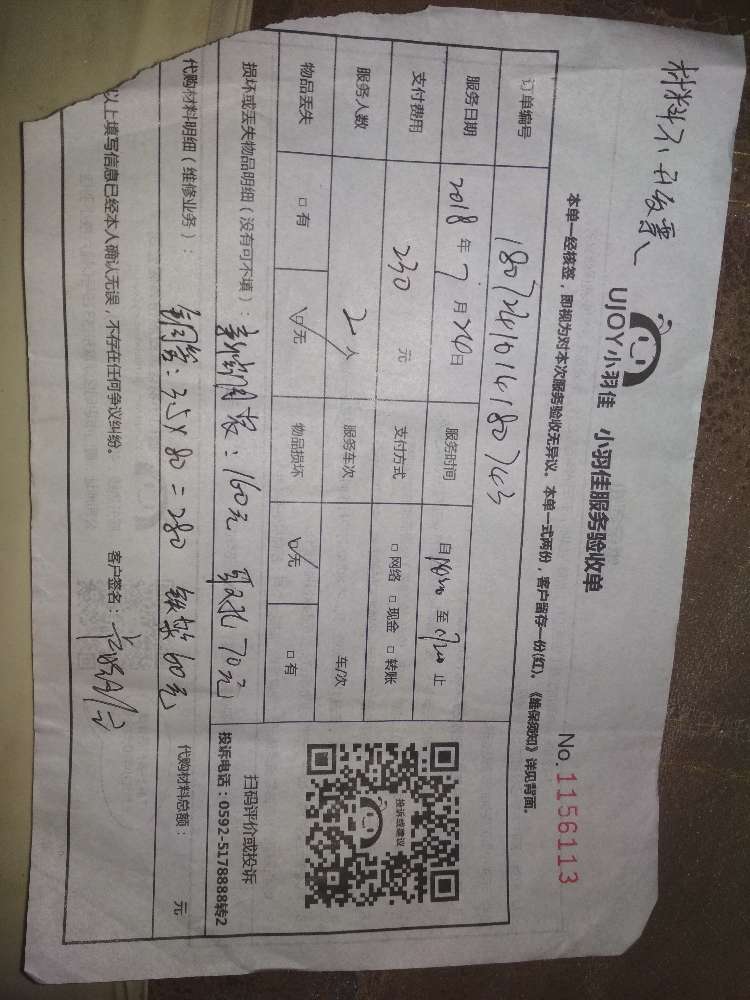 材料不开发票
UJOY小羽佳 小羽佳服务验收单
No.1156113
本单一经核签，即视为对本次服务验收无异议。本单一式两份，客户留存一份(红)。《维保须知》详见背面。
订单编号 1807241614180743
服务日期 2018 年 7 月 24日 服务时间 自 至 止
支付费用 230 元 支付方式 □ 网络 □ 现金 □ 转账
服务人数 2 人 服务车次 车/次
物品丢失 □ 有 ☑无 物品损坏 ☑无 □ 有
损坏或丢失物品明细（没有可不填）： 160元 70元
代购材料明细（维修业务）： 铜管：3.5×80=280 60元 代购材料总额： 元
以上填写信息已经本人确认无误，不存在任何争议纠纷。 客户签名：
投诉或建议
扫码评价或投诉
投诉电话：0592-5178888转2